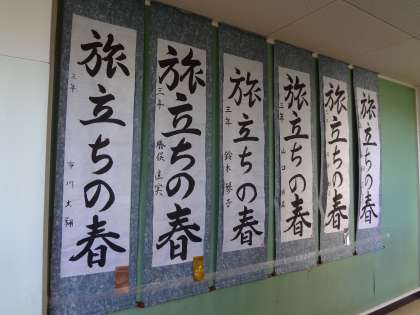 旅立ちの春
三年 市川 大翔
旅立ちの春
三年 勝俣 直実
旅立ちの春
三年 鈴木 琴子
旅立ちの春
三年 山口
旅立ちの春
旅立ちの春